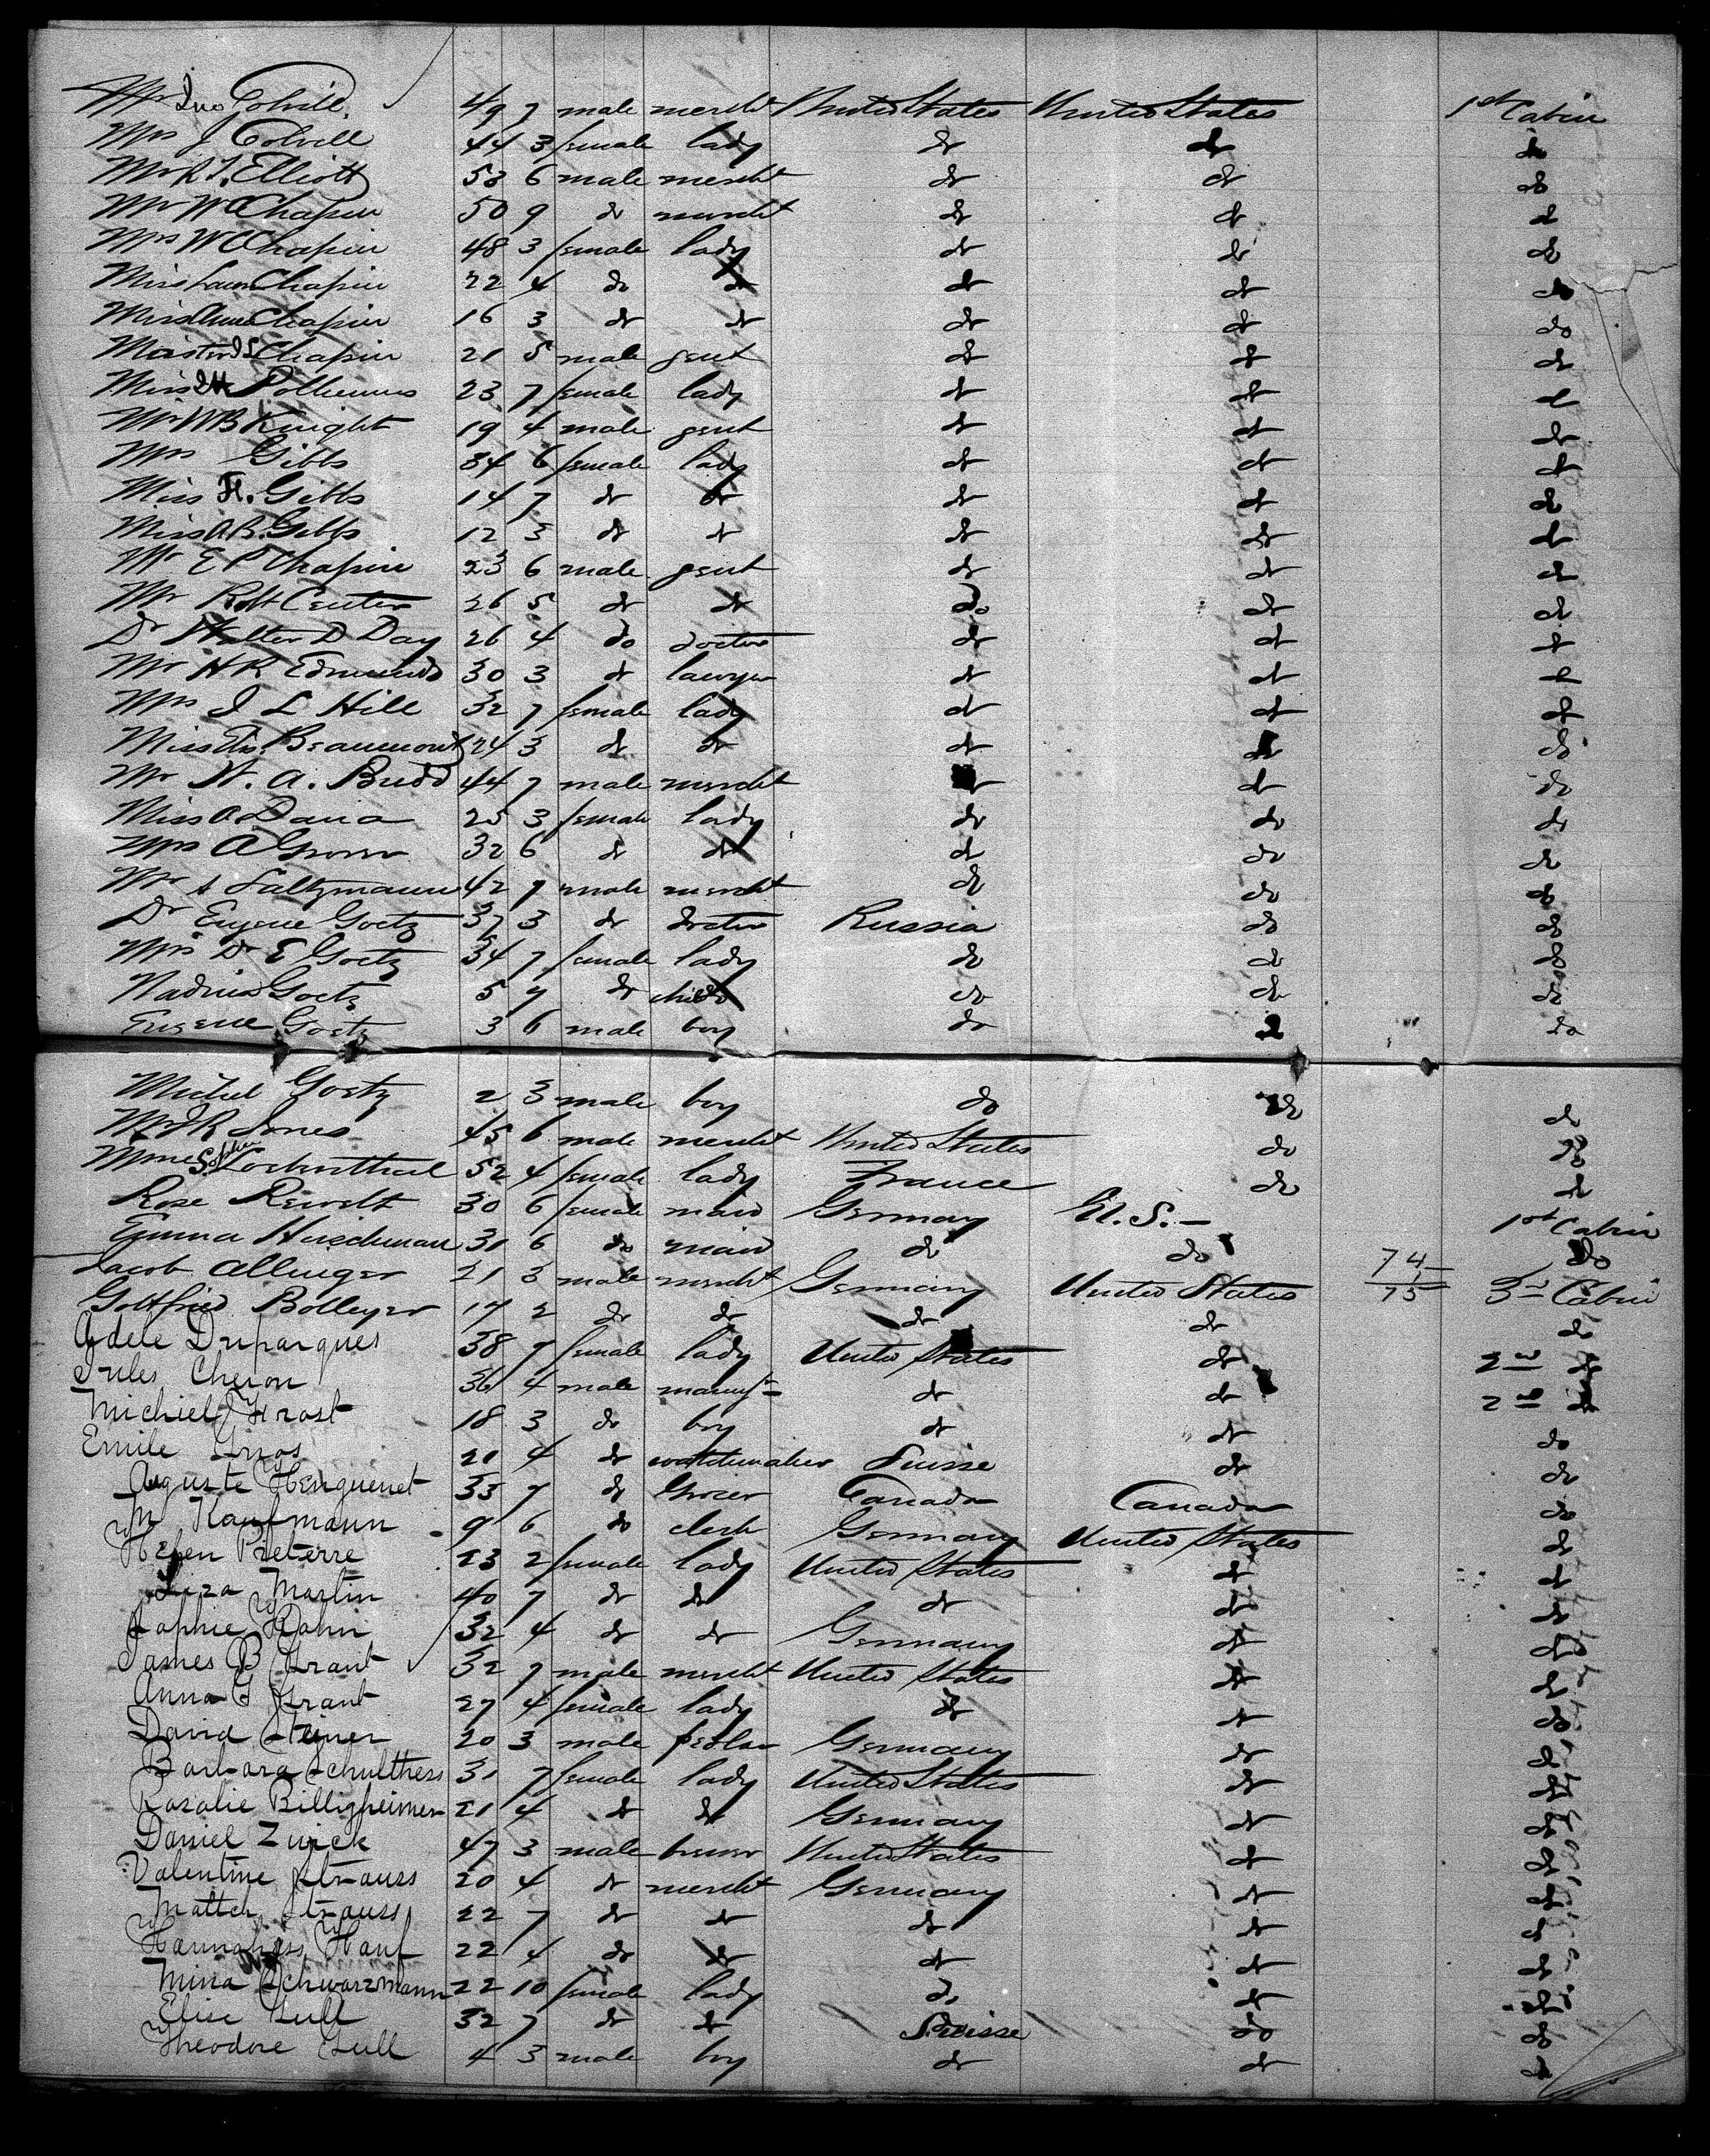 Mr Jno Colvill 49 7 male mercht United States United States 1st Cabin
Mrs J Colvill 44 3 female lady do do do
Mr R T. Elliott 53 6 male mercht do do do
Mr W C Chapin 50 9 do mercht do do do
Mrs W C Chapin 48 3 female lady do do do
Miss Laura Chapin 22 4 do do do do do
Miss Anna Chapin 16 3 do do do do do
Master Chapin 21 5 male gent do do do
Miss Polhemus 23 7 female lady do do do
Mr W B Knight 19 4 male gent do do do
Mrs Gibbs 34 6 female lady do do do
Miss H. Gibbs 14 7 do do do do do
Miss A B. Gibbs 12 3 do do do do do
Mr E P Chapin 23 6 male gent do do do
Mr Robt Center 26 5 do do do do do
Dr Walter D Day 26 4 do doctor do do do
Mr H R Edmunds 30 3 do lawyer do do do
Mrs J L Hill 32 7 female lady do do do
Miss Beaumont 24 3 do do do do do
Mr W. A. Budd 44 7 male mercht do do do
Miss A Dana 25 3 female lady do do do
Mrs A Grover 32 6 do do do do do
Mr A Saltzmann 42 7 male mercht do do do
Dr Eugene Goetz 37 3 do doctor Russia do do
Mrs Dr E Goetz 34 7 female lady do do do
Nadine Goetz 5 7 do child do do do
Eugene Goetz 3 6 male boy do do do
Michel Goetz 2 3 male boy do do do
Mr J R Jones 45 6 male mercht United States do do
Mme Sophie 52 4 female lady France do do
Rose Rewelt 30 6 female maid Germany U.S.- 1st Cabin
Emma Hirschman 31 6 do maid do do do
Jacob Allinger 21 3 male mercht Germany United States 74 75 2nd Cabin
Gottfried Bolleyer 17 2 do do do do do
Adele Duparques 38 7 female lady United States do 2nd do
Jules Cheron 36 4 male manuf do do 2nd do
Michiel Frost 18 3 do boy do do do
Emile Gros 21 4 do watchmaker Suisse do do
Auguste Henguenet 33 7 do Grocer Canada Canada do
M Kaufmann 9 6 do clerk Germany United States do
Helen Pieterre 23 2 female lady United States do do
Liza Martin 40 7 do do do do do
Sophie Hahn 32 4 do do Germany do do
James B Grant 32 7 male mercht United States do do
Anna G Grant 27 4 female lady do do do
David Steiner 20 3 male pedlar Germany do do
Barbara Schulthess 31 7 female lady United States do do
Rosalie Billigheimer 21 4 do do Germany do do
Daniel Zwick 47 3 male brewer United States do do
Valentine Strauss 20 4 do mercht Germany do do
Strauss 22 7 do do do do do
Hauf 22 4 do do do do do
Mina Schwarzmann 22 10 female lady do do do
Elise Gull 32 7 do do Suisse do do
Theodore Gull 4 3 male boy do do do